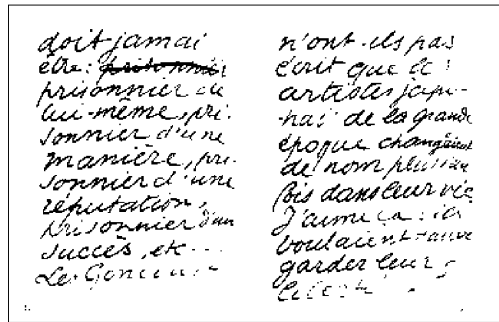 doit jamai
être: prisonnier
prisonnier de
lui-même, pri-
sonnier d'une
manière, pri-
sonnier d'une
réputation,
prisonnier d'un
succès, etc...
Les Goncour
n'ont-ils pas
écrit que les
artistes japo-
nais de la grande
époque changeaient
de nom plusieurs
fois dans leur vie
J'aime ça: ils
voulaient sauve
garder leur
liberté